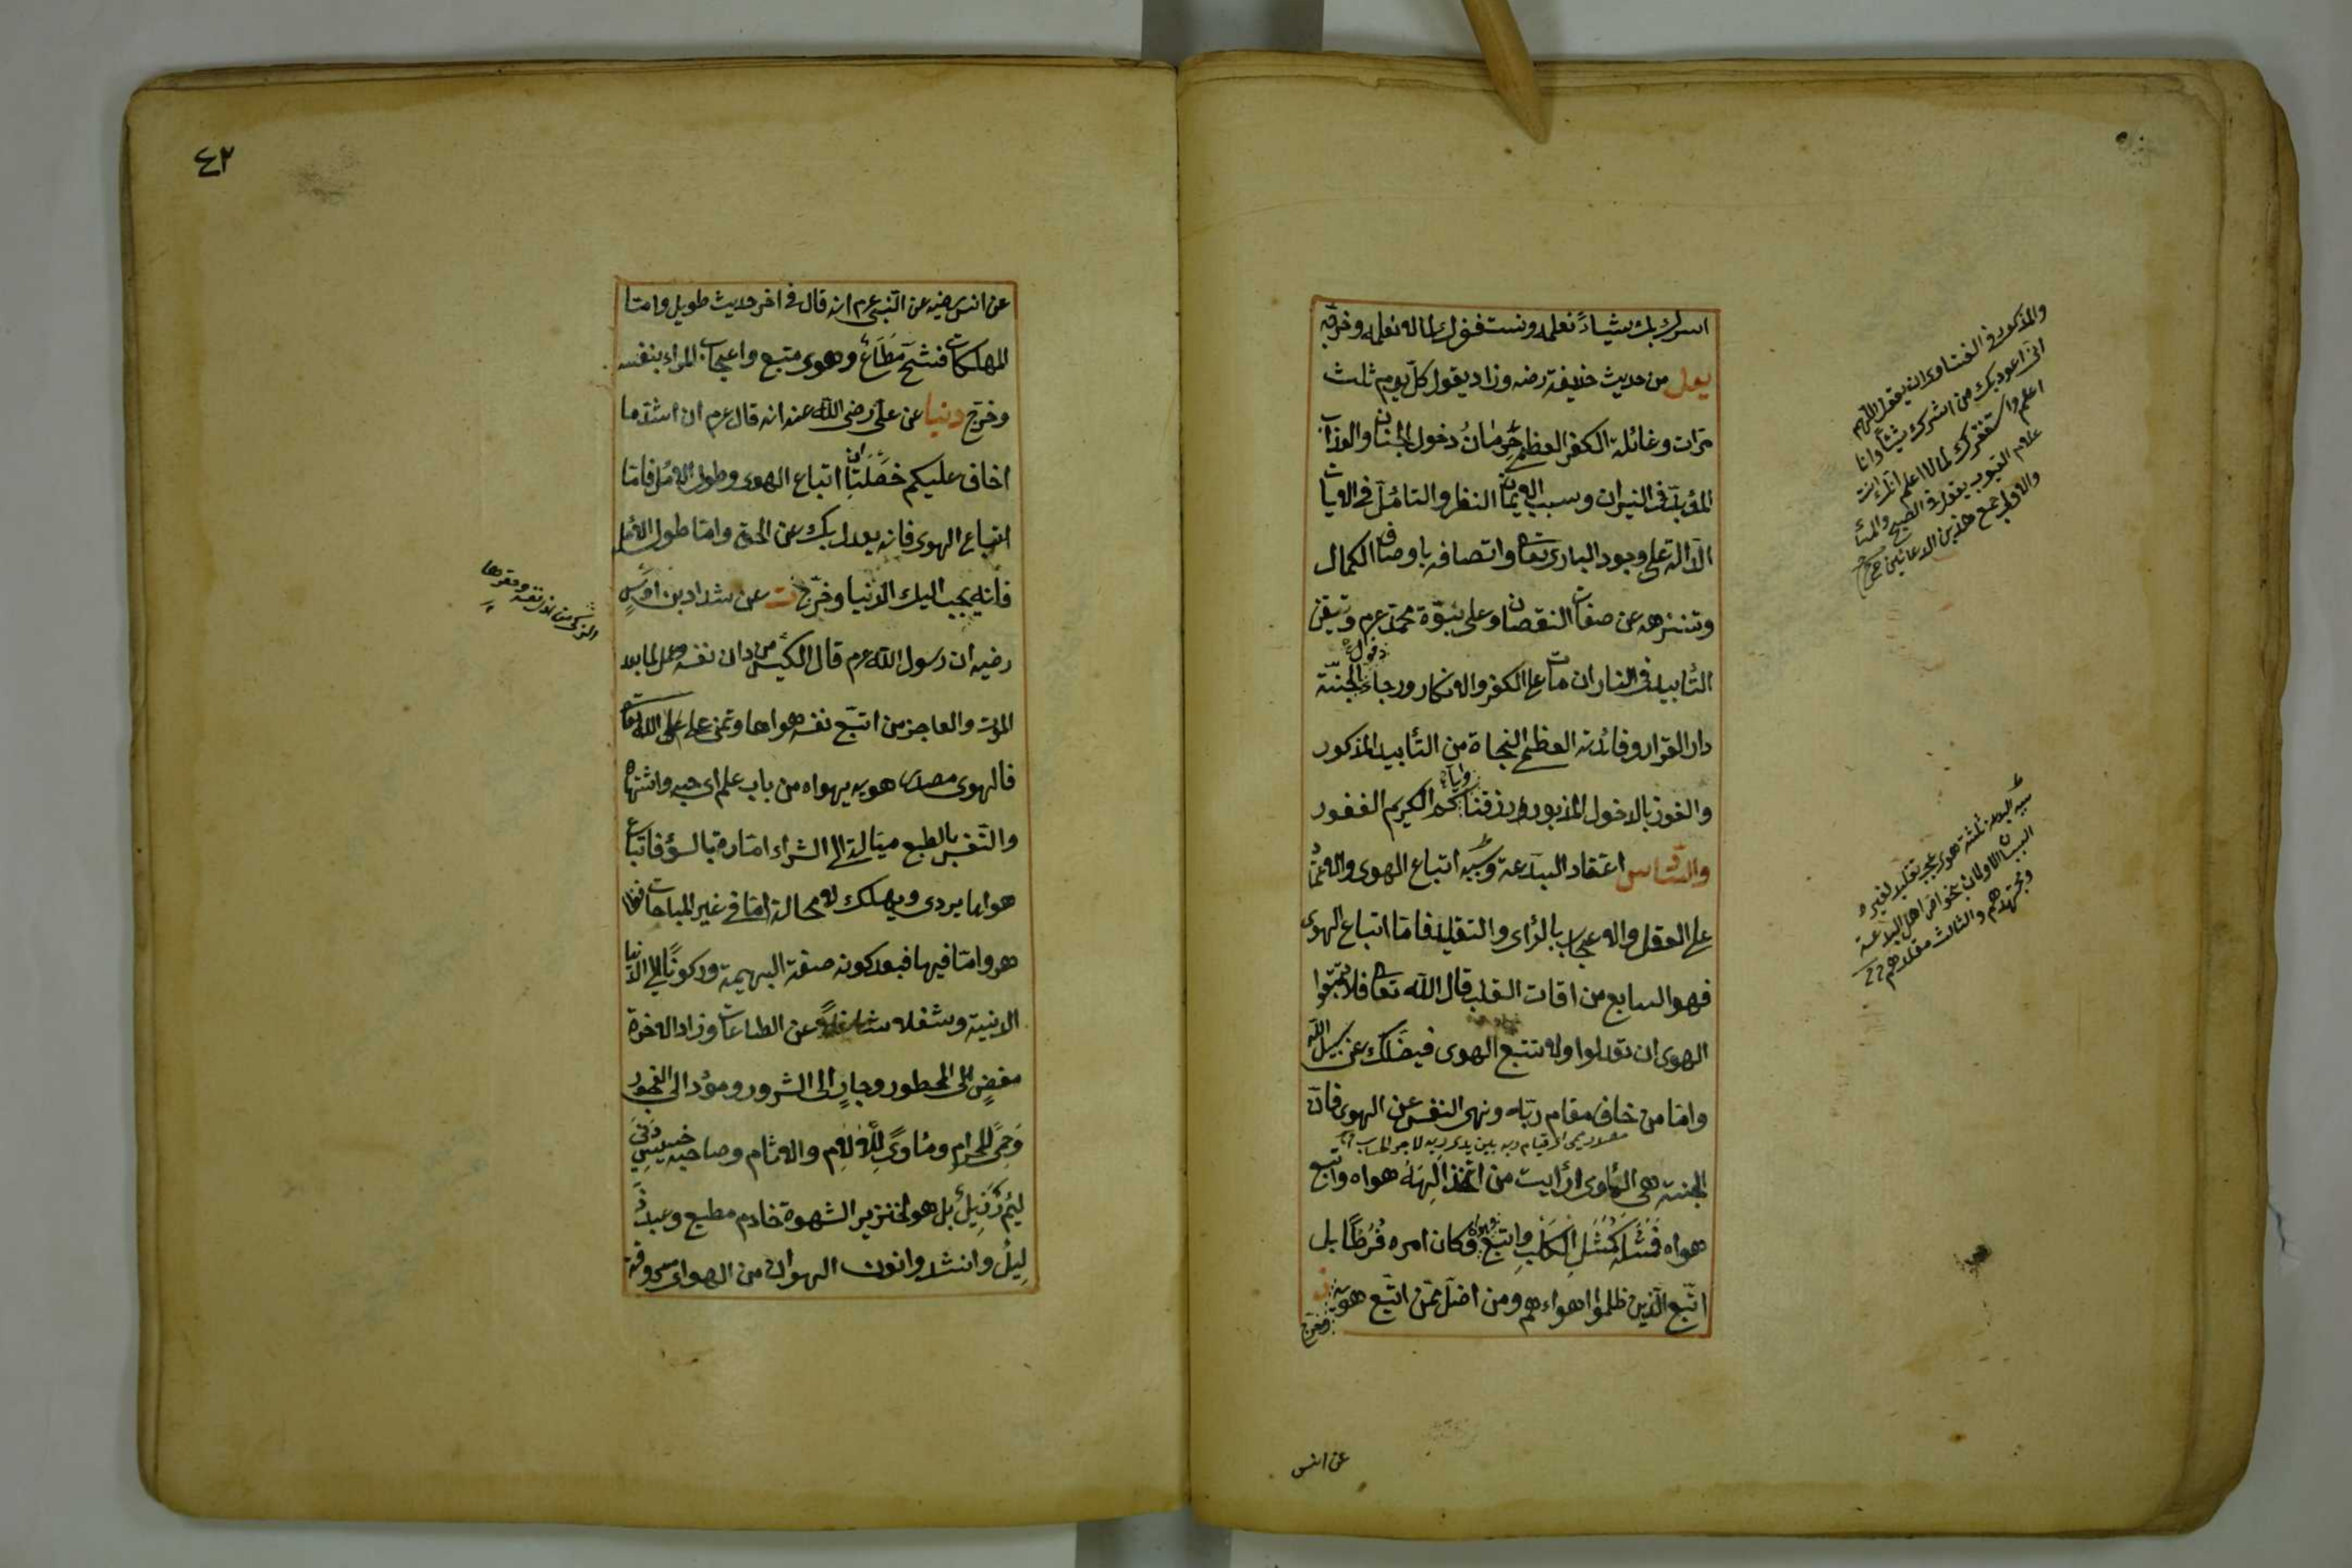 اشرك بك شيئا نعلمه ونستغفرك لما لا نعلمه وخرجه
يعلى من حديث حذيفة رضه وزاد يقول كل يوم ثلث
مرات وغائلة الكفر العظمى حِرمانُ دخول الجنان والعذاب
المؤبد فى النيران وسبب الايمان النظر والتامّل فى الايات
الدالة على وجود البارى تعا واتصافه باوصاف الكمال
وتنزهه عن صفات النقصان وعلى نبوّة محمد عرم وتيقن
التأبيد فى النار ان مات على الكفر والانكار ورجاء دخول الجنّة
دار القرار وفائدته العظمى النجاة من التأبيد المذكور
والفوز بالدخول المزبور رزقنا واياكم الكريم الغفور
والسادس اعتقاد البدعة وسببه اتباع الهوى والاعتماد
على العقل والاعجاب بالرأى والتقليد فامّا اتباع الهوى
فهو السابع من افات القلب قال الله تعا فلا تتبعوا
الهوى ان تعدلوا ولا تتبع الهوى فيضلك عن سبيل الله
وامّا من خاف مقام ربّه ونهى النفس عن الهوى فانّ
الجنة هى المأوى ارأيت من اتخذ الهَهُ هواه واتبع
هواه فَمَثَلُه كَمَثَلِ الكَلْبِ واتبع هواه وكان امره فُرُطًا بل
اتّبع الّذين ظلموا اهواءهم ومن اضلّ ممّن اتّبع هويه
وخرج
عن انس
والمذكور فى الفتاوى ان يقول اللهم
انى اعوذ بك من ان اشرك بك شيئا وانا
اعلم واستغفرك لما لا اعلم انك انت
علام الغيوب يقول فى الصبح والمساء
والاولى جمع هذين الدعائين
٤٢
عن انس رضيه عن النّبى عرم انه قال فى اخر حديث طويل وامّا
المهلكات فشُحّ مُطَاعٌ وهوى متبع واعجاب المرء بنفسه
وخرّج دنيا عن على رضى الله عنه انه قال عرم ان اشدّ ما
اخاف عليكم خَصْلَتَانِ اتباع الهوى وطول الامل فامّا
اتباع الهوى فانه يعدل بك عن الحق وامّا طول الامل
فانّه يحبب اليك الدّنيا وخرّج ت عن شداد بن اوسٍ
رضيه ان رسول الله عرم قال الكيّس من دان نفسه وعمل لما بعد
الموت والعاجز من اتبّع نفسه هواها وتمنى على الله تعا
فالهوى مصدر هويه يهواه من باب علم اى حبه واشتهاه
والنّفس بالطبع ميّالة الى الشر امّارة بالسّوء فاتباع
هواها يردى ويهلك لا محالة امّا فى غير المباحات فظا
هر وامّا فيها فبعد كونه صفة البهيمة وركونًا الى الدّنيا
الدنية وشغله شاغل عن الطاعات وزاد الاخرة
مفضٍ الى المحظور وجارٍ الى الشرور ومؤد الى الفجور
وَحِمًى للحرام ومأوىً لِلْآلامِ والاثام وصاحبه خسيس دَنِىّ
لَئِيمٌ رَذِيلٌ بل هو لخنزير الشهوة خادم مطيع وعبد ذ
لِيلٌ وانشدوا نون الهوان من الهوى مسروقة